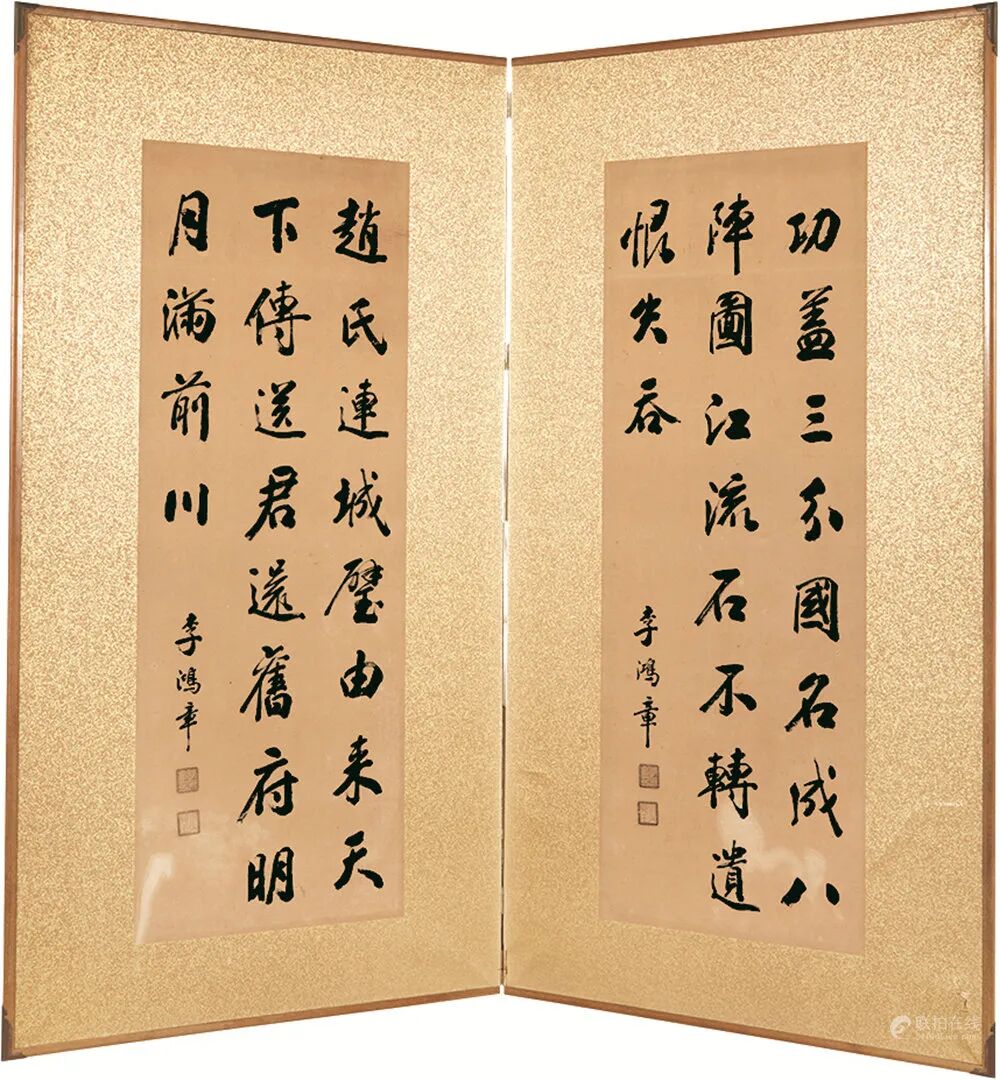 功蓋三分國名成八
陣圖江流石不轉遺
恨失吞
李鴻章
趙氏連城璧由来天
下傳送君還舊府明
月滿前川
李鴻章
联拍在线